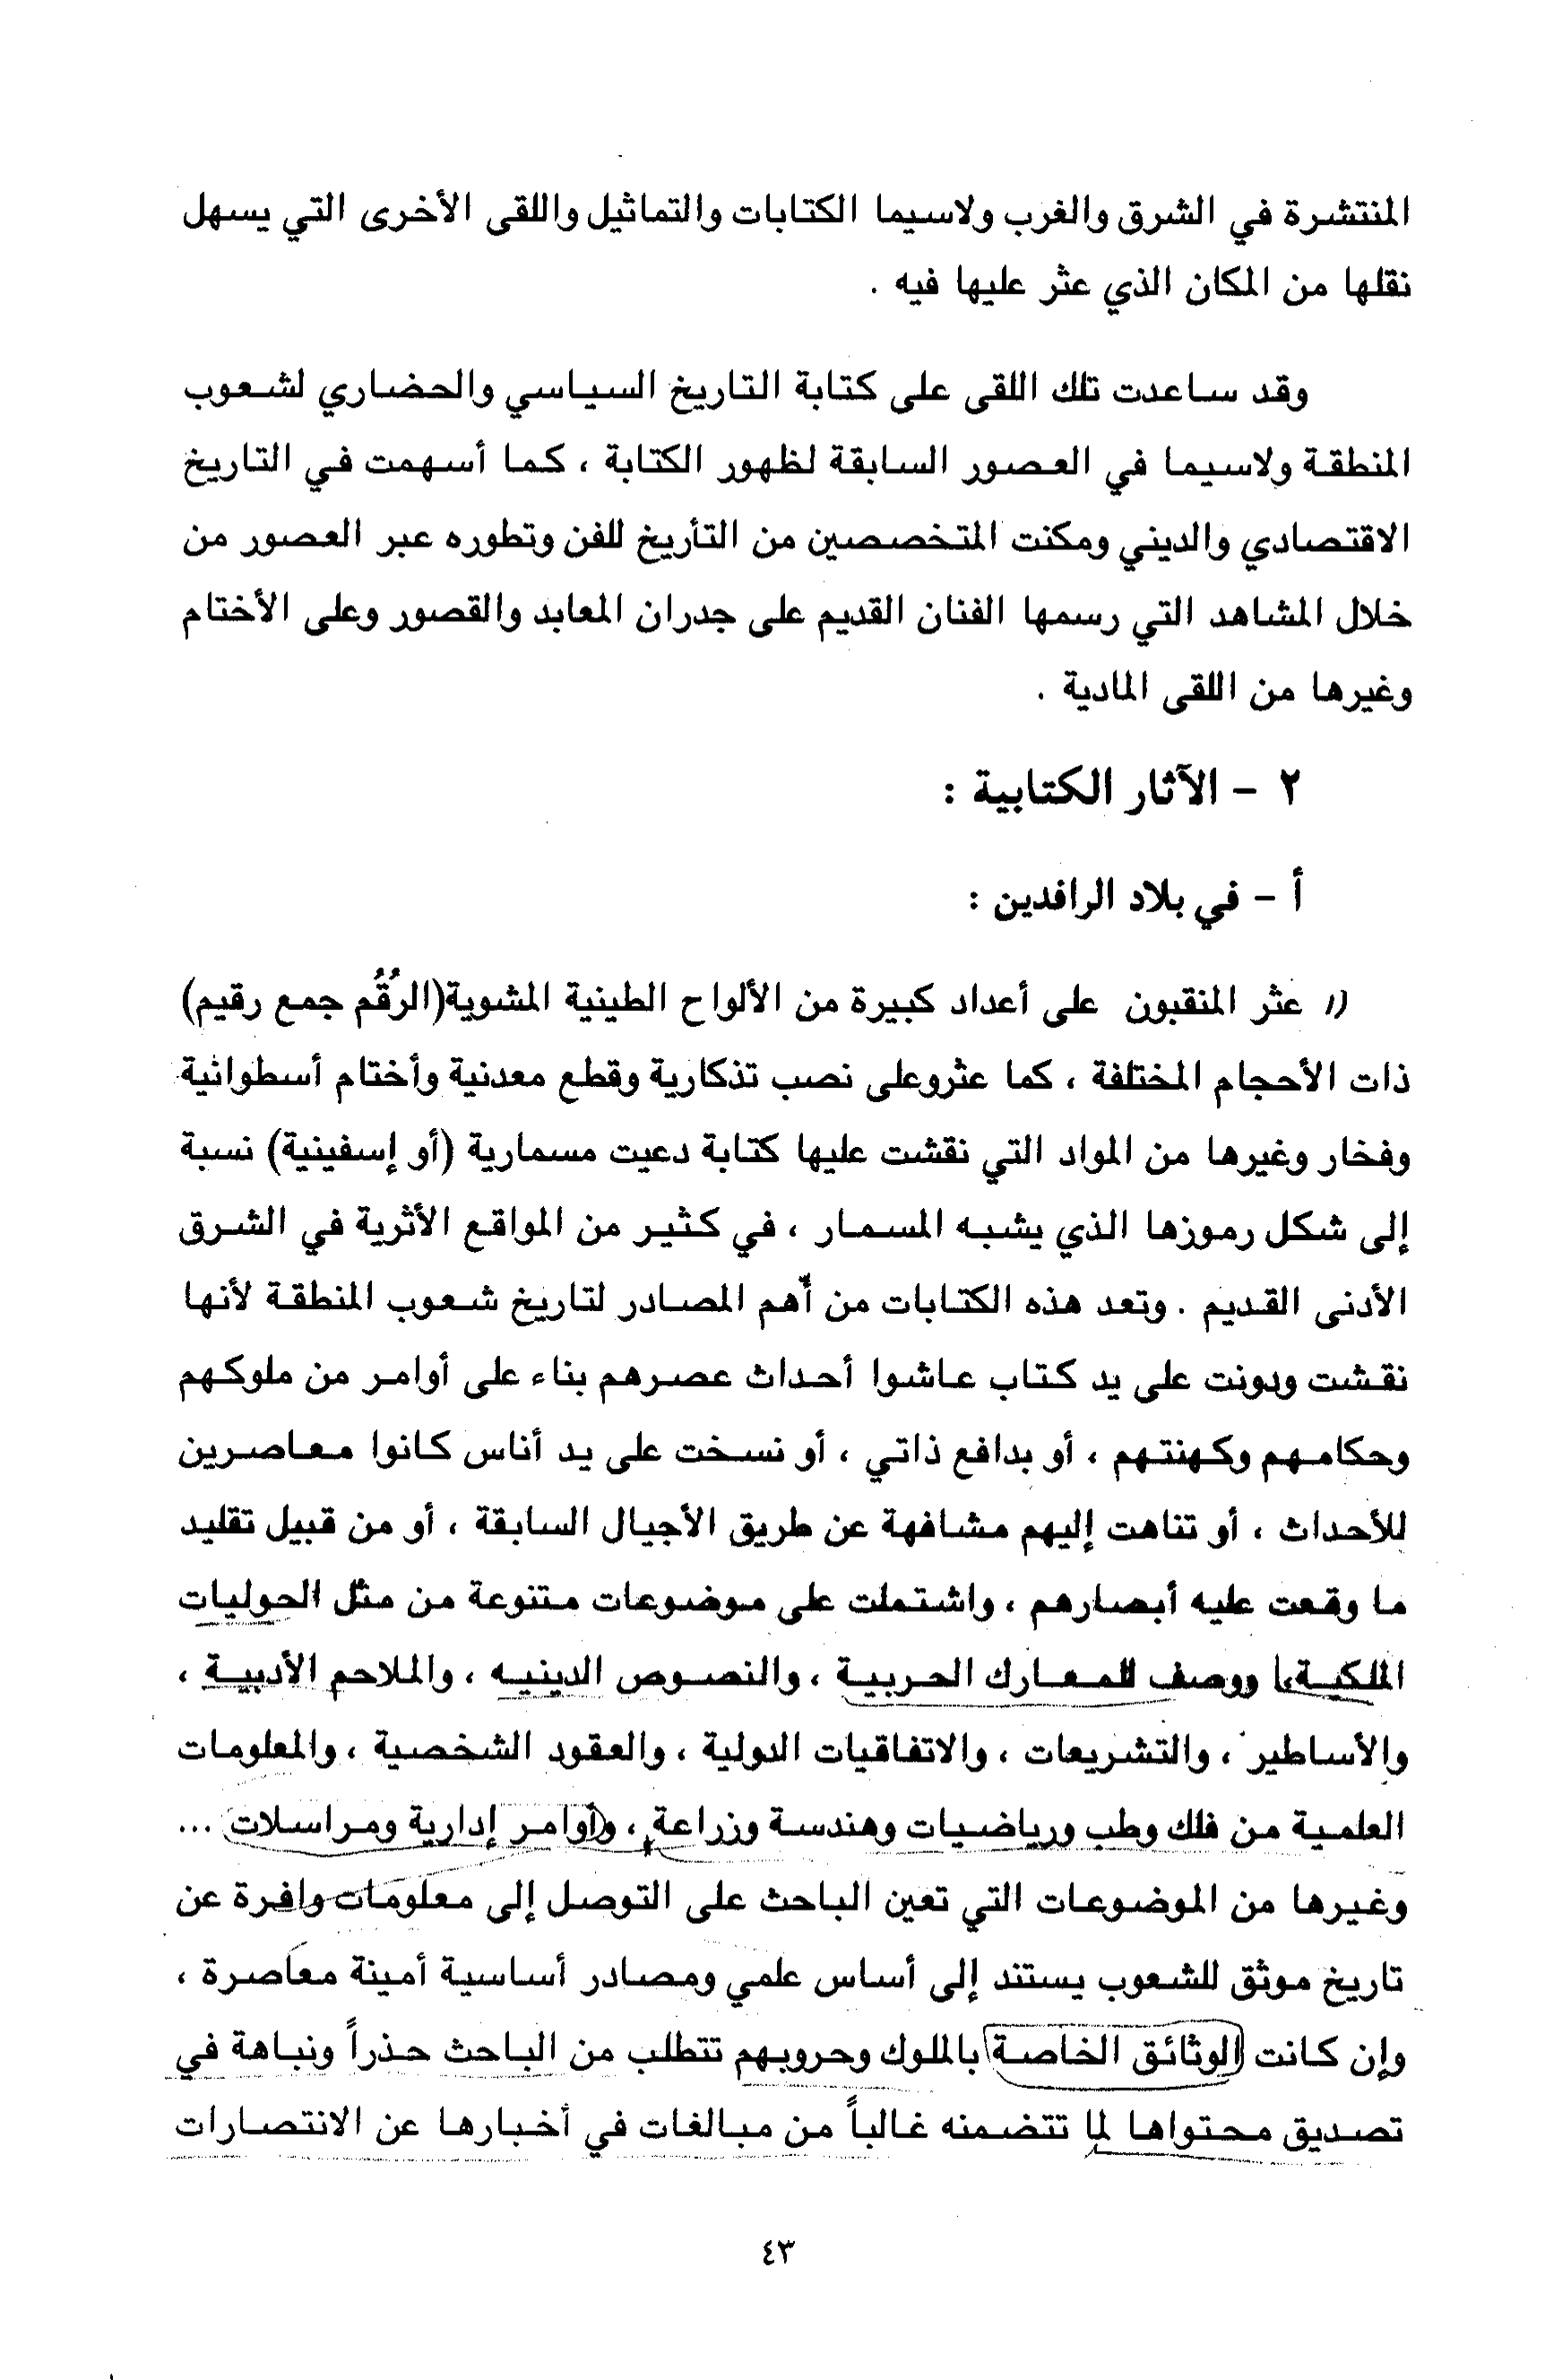 المنتشرة في الشرق والغرب ولاسيما الكتابات والتماثيل واللقى الأخرى التي يسهل
نقلها من المكان الذي عثر عليها فيه .
وقد ساعدت تلك اللقى على كتابة التاريخ السياسي والحضاري لشعوب
المنطقة ولاسيما في العصور السابقة لظهور الكتابة ، كما أسهمت في التاريخ
الاقتصادي والديني ومكنت المتخصصين من التأريخ للفن وتطوره عبر العصور من
خلال المشاهد التي رسمها الفنان القديم على جدران المعابد والقصور وعلى الأختام
وغيرها من اللقى المادية .
٢ - الآثار الكتابية :
أ - في بلاد الرافدين :
عثر المنقبون على أعداد كبيرة من الألواح الطينية المشوية(الرُقُم جمع رقيم)
ذات الأحجام المختلفة ، كما عثروعلى نصب تذكارية وقطع معدنية وأختام أسطوانية
وفخار وغيرها من المواد التي نقشت عليها كتابة دعيت مسمارية (أو إسفينية) نسبة
إلى شكل رموزها الذي يشبه المسمار ، في كثير من المواقع الأثرية في الشرق
الأدنى القديم . وتعد هذه الكتابات من أهم المصادر لتاريخ شعوب المنطقة لأنها
نقشت ودونت على يد كتاب عاشوا أحداث عصرهم بناء على أوامر من ملوكهم
وحكامهم وكهنتهم ، أو بدافع ذاتي ، أو نسخت على يد أناس كانوا معاصرين
للأحداث ، أو تناهت إليهم مشافهة عن طريق الأجيال السابقة ، أو من قبيل تقليد
ما وقعت عليه أبصارهم ، واشتملت على موضوعات متنوعة من مثل الحوليات
الملكية، ووصف للمعارك الحربية ، والنصوص الدينيه ، والملاحم الأدبية ،
والأساطير ، والتشريعات ، والاتفاقيات الدولية ، والعقود الشخصية ، والمعلومات
العلمية من فلك وطب ورياضيات وهندسة وزراعة ، وأوامر إدارية ومراسلات ...
وغيرها من الموضوعات التي تعين الباحث على التوصل إلى معلومات وافرة عن
تاريخ موثق للشعوب يستند إلى أساس علمي ومصادر أساسية أمينة معاصرة ،
وإن كانت الوثائق الخاصة بالملوك وحروبهم تتطلب من الباحث حذراً ونباهة في
تصديق محتواها لما تتضمنه غالباً من مبالغات في أخبارها عن الانتصارات
٤٣